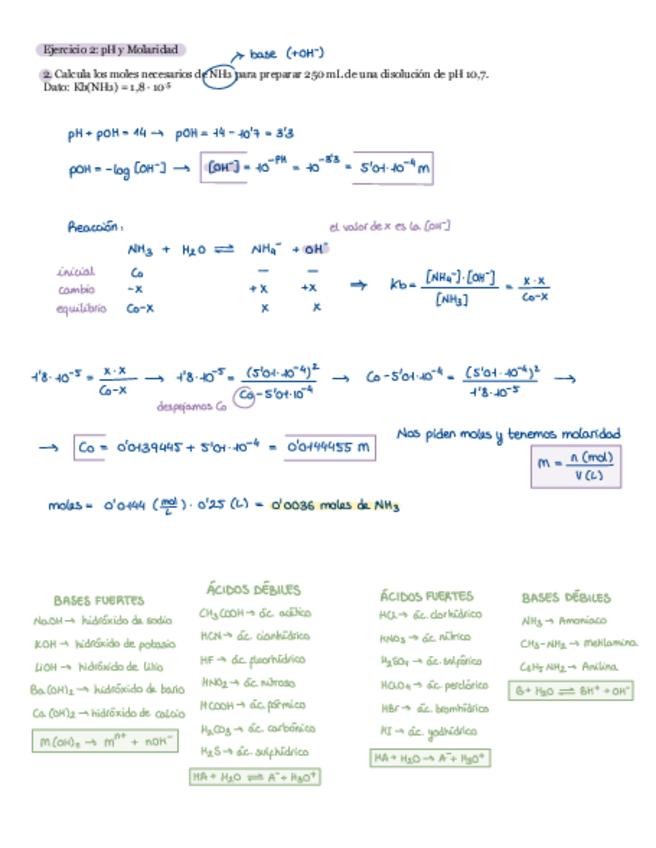 Ejercicio 2: pH y Molaridad
base (+OH⁻)
2. Calcula los moles necesarios de NH₃ para preparar 250 mL de una disolución de pH 10,7.
Dato: Kb(NH₃) = 1,8 · 10⁻⁵
pH + pOH = 14 → pOH = 14 - 10'7 = 3'3
pOH = -log [OH⁻] → [OH⁻] = 10^-PH = 10^-3'3 = 5'01·10⁻⁴ M
Reacción:
el valor de x es la [OH⁻]
NH₃ + H₂O ⇌ NH₄⁻ + OH⁻
inicial Co — —
cambio -x +x +x ⇒ Kb = [NH₄⁻]·[OH⁻] / [NH₃] = x·x / Co-x
equilibrio Co-x x x
1'8·10⁻⁵ = x·x / Co-x → 1'8·10⁻⁵ = (5'01·10⁻⁴)² / Co-5'01·10⁻⁴ → Co-5'01·10⁻⁴ = (5'01·10⁻⁴)² / 1'8·10⁻⁵ →
despejamos Co
→ Co = 0'0139445 + 5'01·10⁻⁴ = 0'0144455 M
Nos piden moles y tenemos molaridad
M = n (mol) / V (L)
moles = 0'0144 (mol/L) · 0'25 (L) = 0'0036 moles de NH₃
BASES FUERTES
NaOH → hidróxido de sodio
KOH → hidróxido de potasio
LiOH → hidróxido de litio
Ba(OH)₂ → hidróxido de bario
Ca(OH)₂ → hidróxido de calcio
M(OH)ₙ → Mⁿ⁺ + nOH⁻
ÁCIDOS DÉBILES
CH₃COOH → ác. acético
HCN → ác. cianhídrico
HF → ác. fluorhídrico
HNO₂ → ác. nitroso
HCOOH → ác. fórmico
H₂CO₃ → ác. carbónico
H₂S → ác. sulfhídrico
HA + H₂O ⇌ A⁻ + H₃O⁺
ÁCIDOS FUERTES
HCl → ác. clorhídrico
HNO₃ → ác. nítrico
H₂SO₄ → ác. sulfúrico
HClO₄ → ác. perclórico
HBr → ác. bromhídrico
HI → ác. yodhídrico
HA + H₂O → A⁻ + H₃O⁺
BASES DÉBILES
NH₃ → Amoniaco
CH₃-NH₂ → Metilamina
C₆H₅NH₂ → Anilina
B + H₂O ⇌ BH⁺ + OH⁻